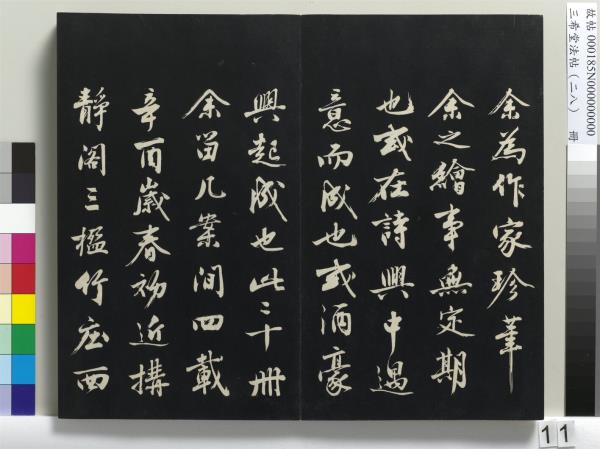 余為作家珍筆
余之繪事無定期
也或在詩興中遇
意而成也或酒豪
興起成也此三十冊
余留几案間四載
辛酉歲春初近搆
靜閣三楹竹庄西
故帖 000185N000000000
三希堂法帖(二八) 冊
11